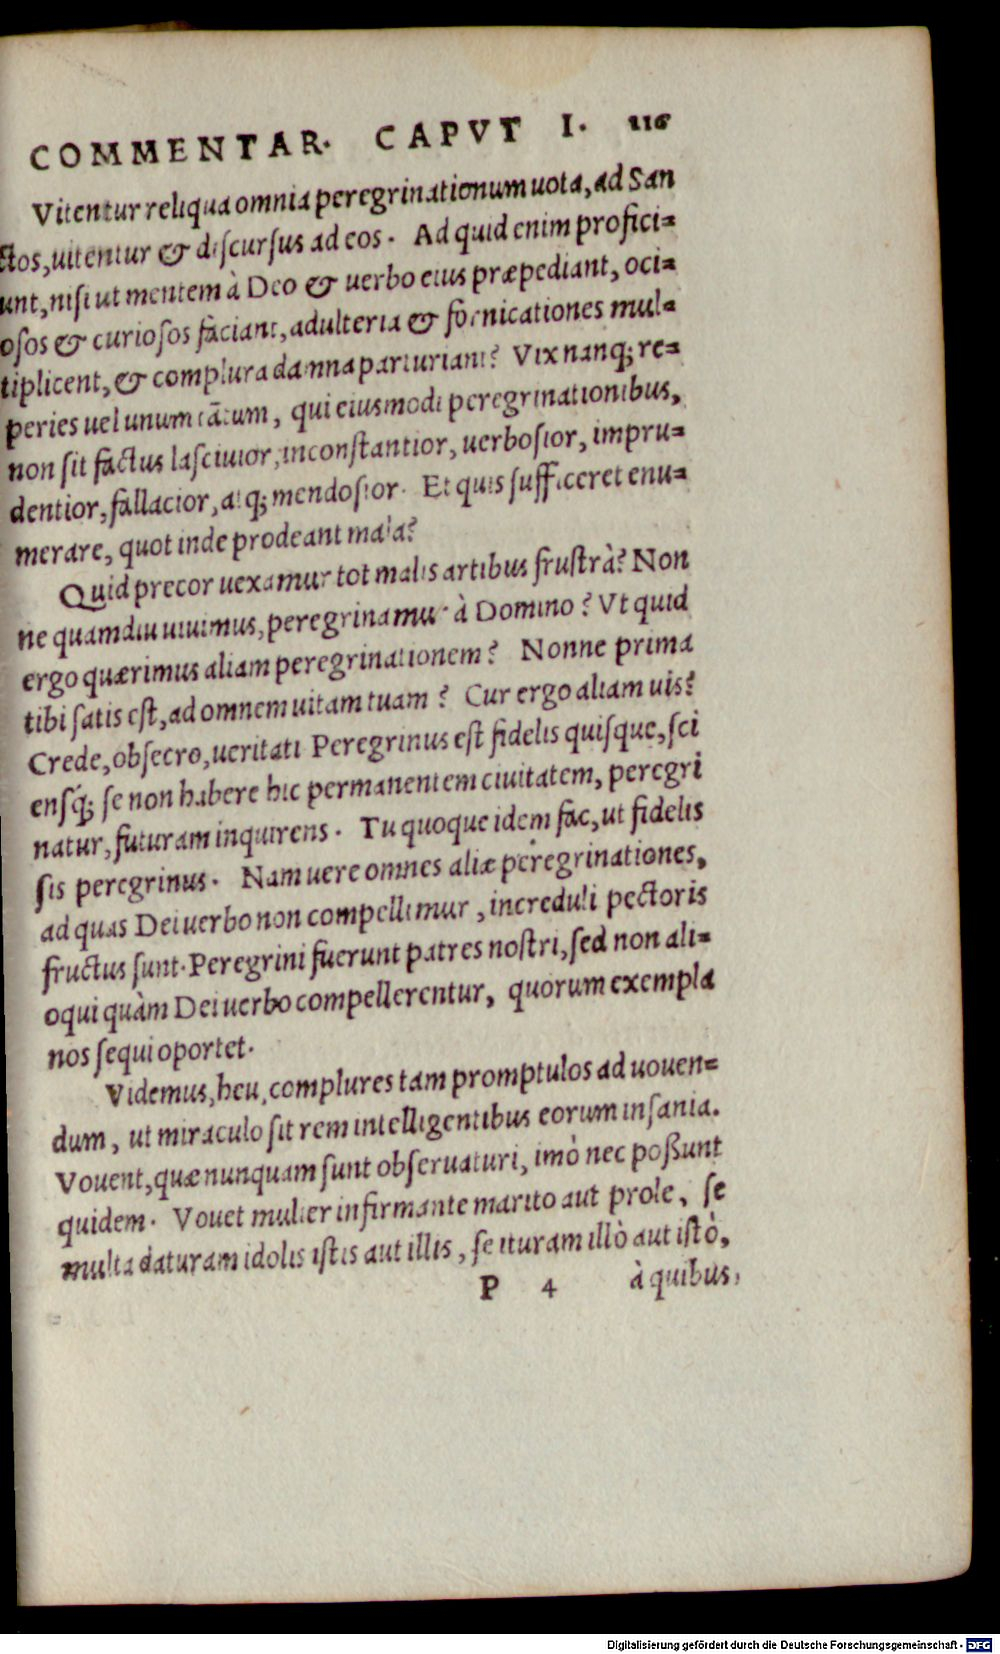 COMMENTAR. CAPVT I. 116
Vitentur reliqua omnia peregrinationum uota, ad San
ctos, uitentur & discursus ad eos. Ad quid enim profici=
unt, nisi ut mentem à Deo & uerbo eius præpediant, oci=
osos & curiosos faciant, adulteria & fornicationes mul=
tiplicent, & complura damna parturiant? Vix nanq; re=
peries uel unum tātum, qui eiusmodi peregrinationibus,
non sit factus lasciuior, inconstantior, uerbosior, impru=
dentior, fallacior, atq; mendosior. Et quis sufficeret enu=
merare, quot inde prodeant mala?
Quid precor uexamur tot malis artibus frustrà? Non
ne quamdiu uiuimus, peregrinamur à Domino? Vt quid
ergo quærimus aliam peregrinationem? Nonne prima
tibi satis est, ad omnem uitam tuam? Cur ergo aliam uis?
Crede, obsecro, ueritati Peregrinus est fidelis quisque, sci
ensq́; se non habere hic permanentem ciuitatem, peregri
natur, futuram inquirens. Tu quoque idem fac, ut fidelis
sis peregrinus. Nam uere omnes aliæ peregrinationes,
ad quas Dei uerbo non compellimur, increduli pectoris
fructus sunt. Peregrini fuerunt patres nostri, sed non ali=
oqui quàm Dei uerbo compellerentur, quorum exempla
nos sequi oportet.
Videmus, heu, complures tam promptulos ad uouen=
dum, ut miraculo sit rem intelligentibus eorum insania.
Vouent, quæ nunquam sunt obseruaturi, imò nec poßunt
quidem. Vouet mulier infirmante marito aut prole, se
multa daturam idolis istis aut illis, se ituram illò aut istò,
P 4 à quibus,
Digitalisierung gefördert durch die Deutsche Forschungsgemeinschaft - DFG